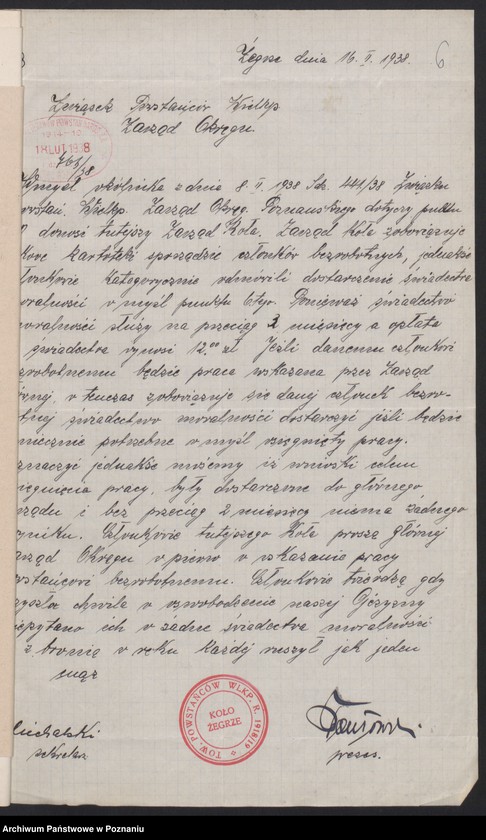 Żegrze dnia 16. II. 1938.
6
Związek Powstańców Wielkp
Zarząd Okręgu.
18 LUT 1938
763/38
W myśl okólnika z dnia 8. II. 1938 Ldz. 444/38 Związku
Powstań. Wielkp. Zarząd Okręg. Poznańskiego dotyczy punktu
donosi tutejszy Zarząd Koła. Zarząd Koła zobowiązuje
kartoteki sporządzić członków bezrobotnych, jednakże
członkowie kategorycznie odmówili dostarczenie świadectw
moralności w myśl punktu Ponieważ świadectwo
moralności służy na przeciąg 3 miesięcy a opłata
świadectwa wynosi 12.00 zł Jeśli danemu członkowi
bezrobotnemu będzie praca wskazana przez Zarząd
wtenczas zobowiązuje się dany członek bezro-
botny świadectwo moralności dostarczyć jeśli będzie
koniecznie potrzebne w myśl pracy.
zaznaczyć jednakże możemy iż wnioski celem
pracy, były dostarczone do głównego
Zarządu i bez przeciąg 2 miesięcy niema żadnego
wyniku. Członkowie tutejszego Koła proszą główny
Zarząd Okręgu w pierw o wskazanie pracy
powstańcowi bezrobotnemu. Członkowie twierdzą gdy
przyszła chwila o oswobodzenie naszej Ojczyzny
niepytano ich o żadne świadectwa moralności
z bronią w ręku każdy ruszył jak jeden
mąż
TOW. POWSTAŃCÓW WLKP. R. 1918/19
KOŁO
ŻEGRZE
sekretarz
prezes.
Archiwum Państwowe w Poznaniu